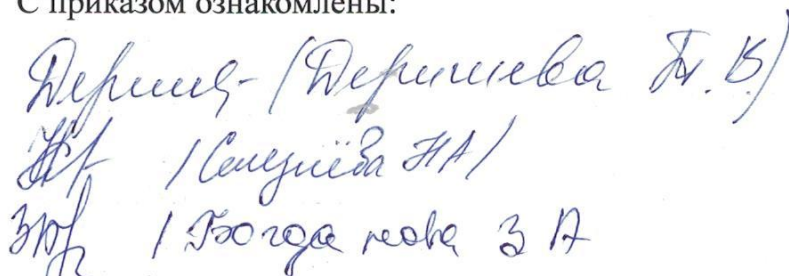 С приказом ознакомлены:
(Деришева Т.В.)
/Селезнёва НА/
/Богданова З А